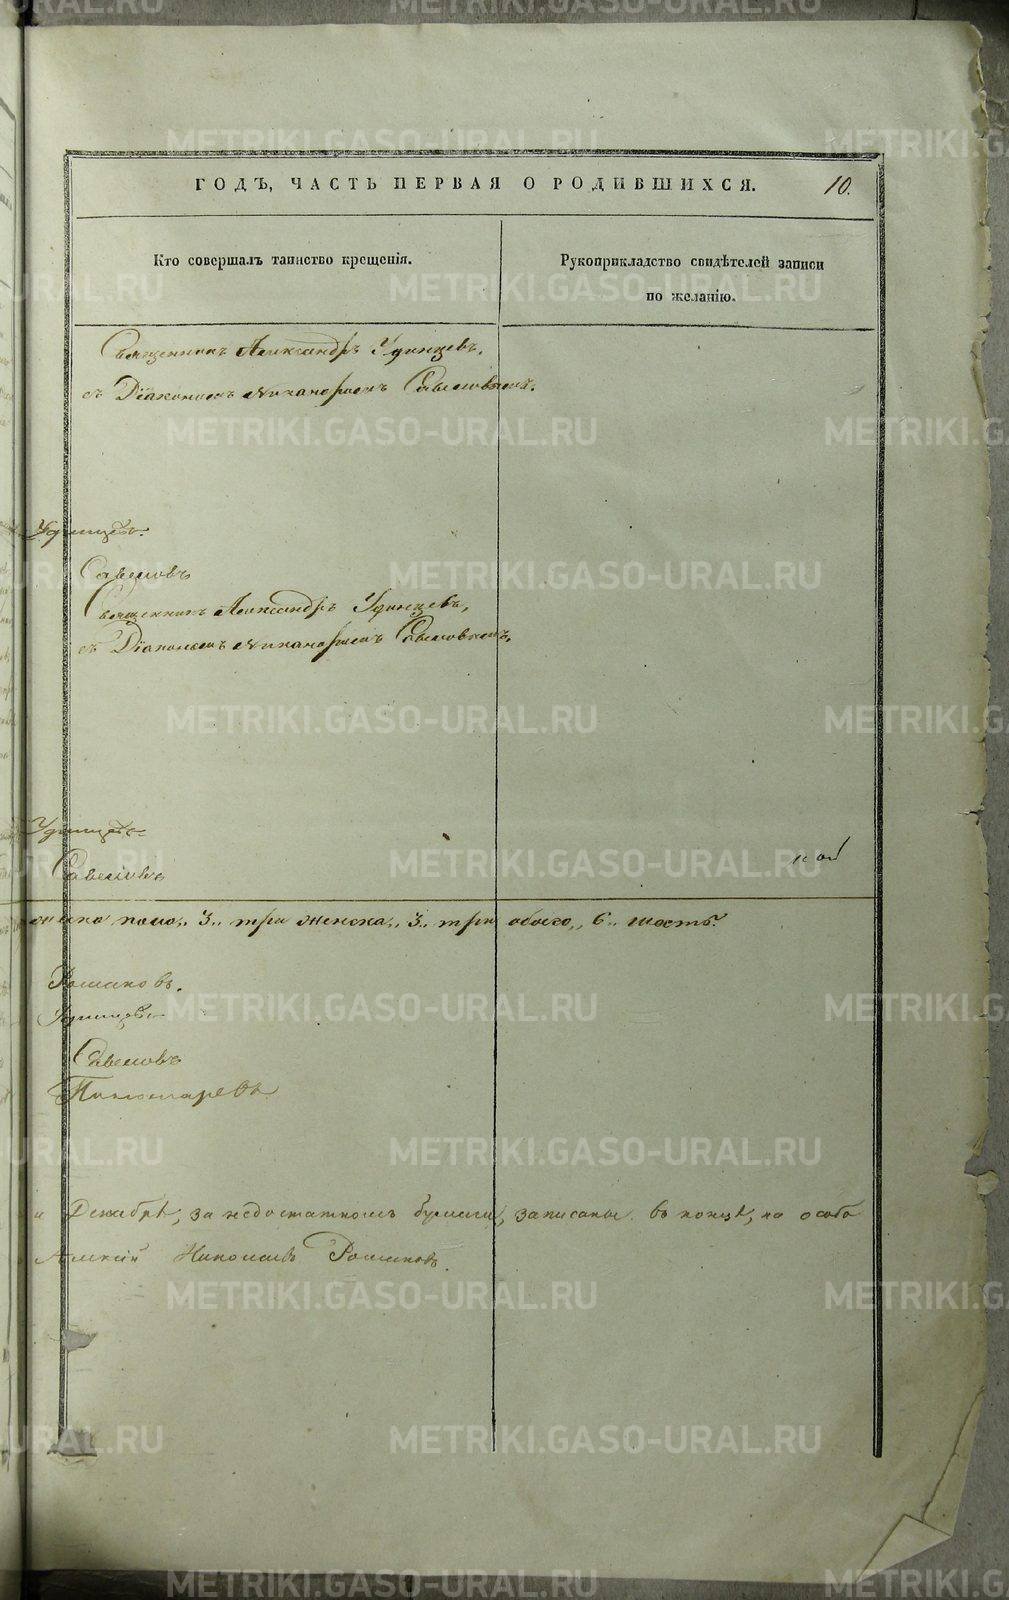 ГОДЪ, ЧАСТЬ ПЕРВАЯ О РОДИВШИХСЯ. 10.
Кто совершалъ таинство крещенія.
Рукоприкладство свидѣтелей записи
по желанію.
Священникъ Александръ Удинцевъ,
съ Діакономъ Никанором Савеловымъ.
Удинцевъ
Савеловъ
Священникъ Александръ Удинцевъ,
съ Діакономъ Никаноромъ Савеловымъ,
Удинцевъ
Савеловъ
пола,, 3,, три женска,, 3,, три обоего,, 6,, шесть.
Романовъ.
Удинцевъ
Савеловъ
Пономаревъ
и Декабрѣ, за недостаткомъ бумаги, записаны въ концѣ, на особо
Николаевъ Романовъ.
METRIKI.GASO-URAL.RU